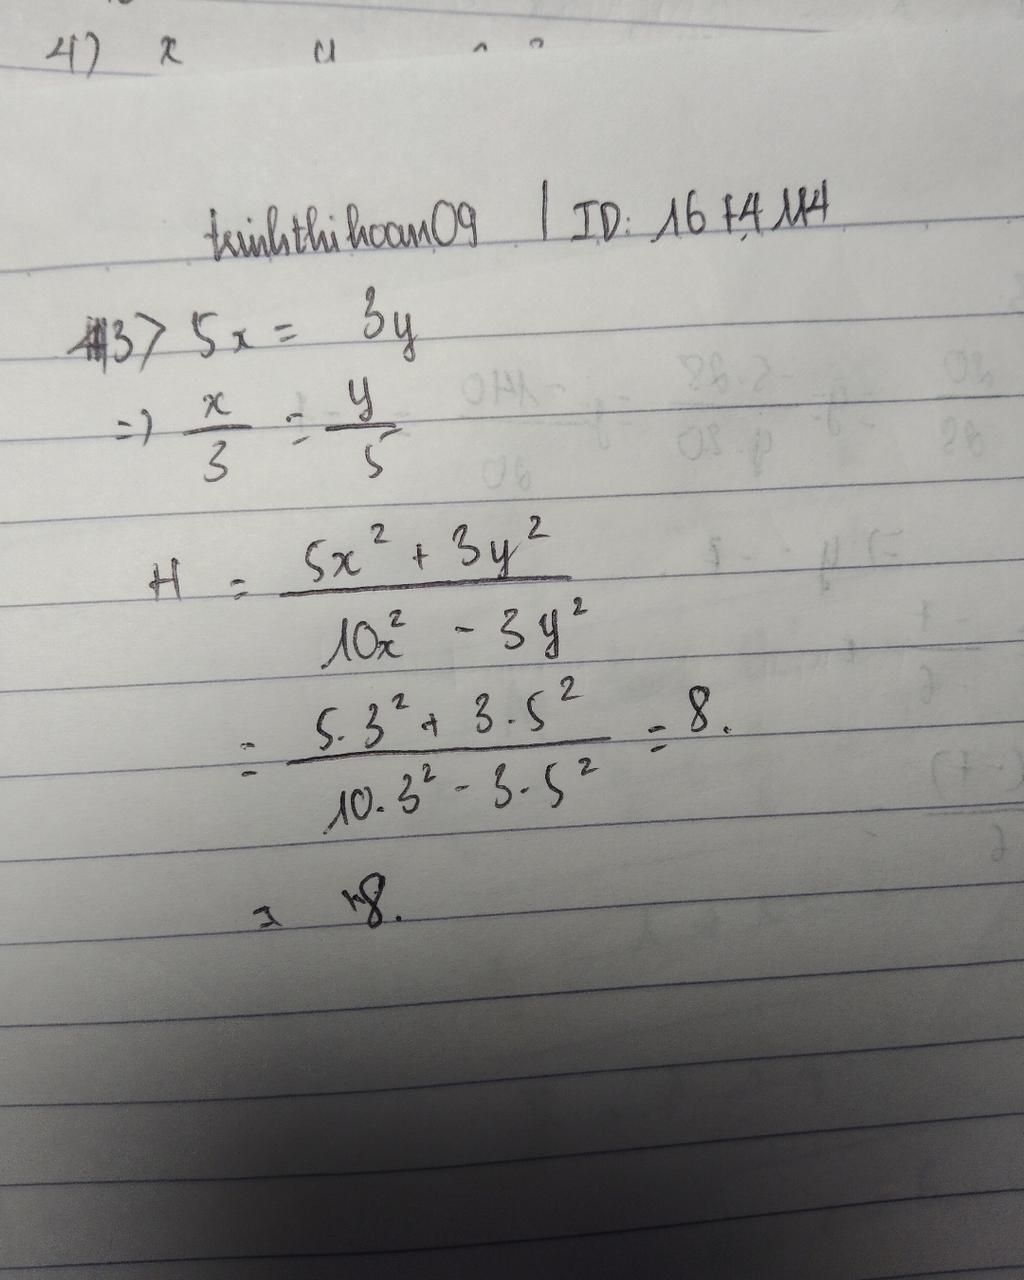 4) x
trinhthihoan09 | ID: 1674114
3> 5x = 3y
=) x/3 = y/5
H = (5x² + 3y²)/(10x² - 3y²)
= (5.3² + 3.5²)/(10.3² - 3.5²) = 8.
= 8.